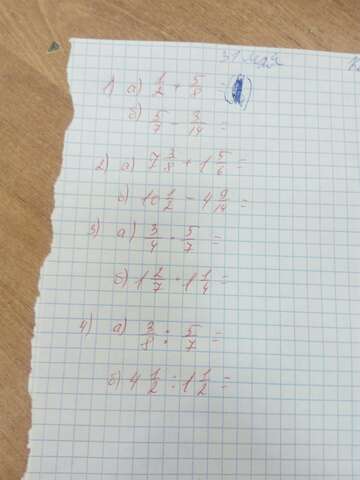 31 мая
К
1) а) 1/2 + 5/8 =
б) 5/7 - 3/14 =
2) а) 7 3/8 + 1 5/6 =
б) 10 1/2 - 4 9/14 =
3) а) 3/4 · 5/7 =
б) 1 2/7 · 1 1/4 =
4) а) 3/8 : 5/7 =
б) 4 1/2 : 1 1/2 =